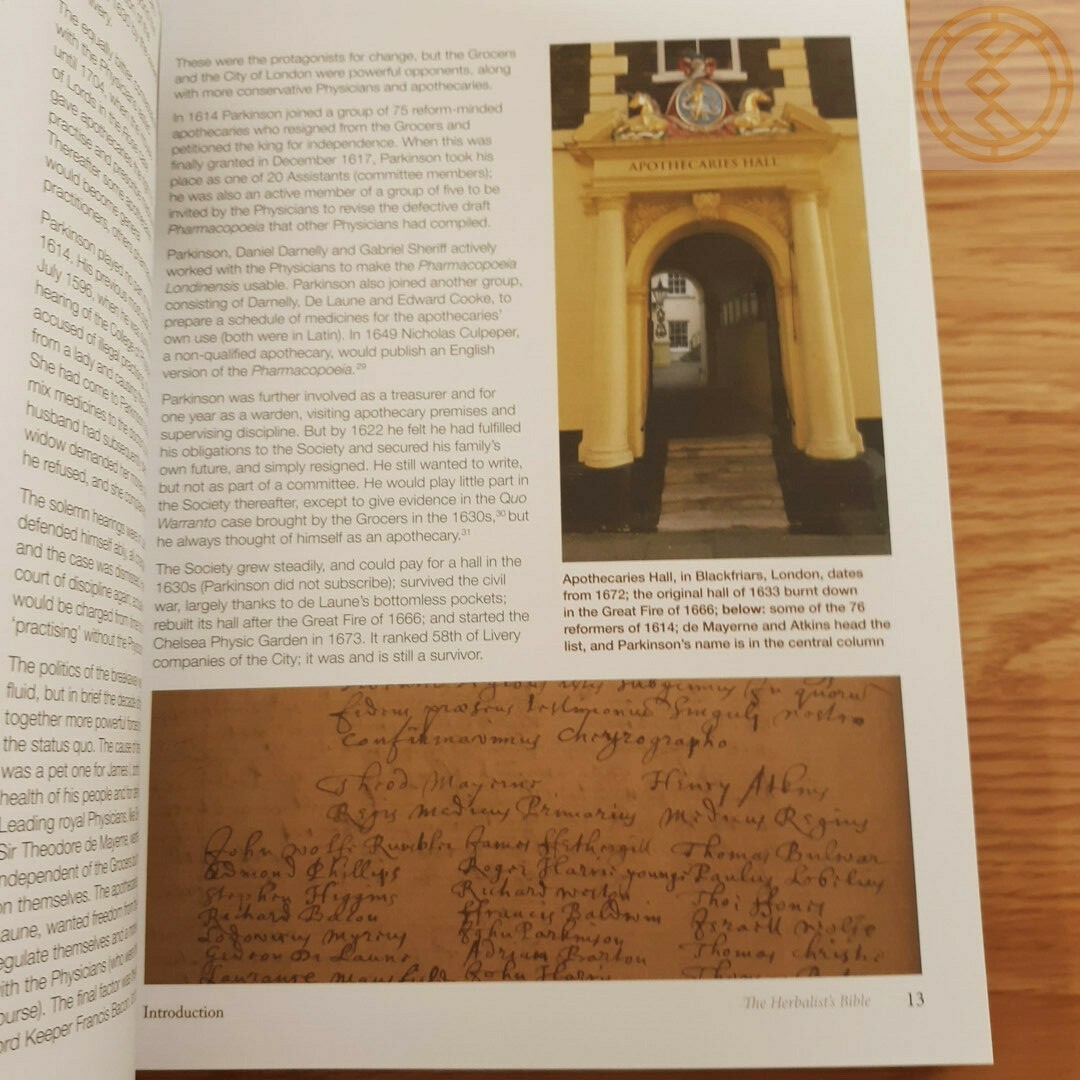 The equally bitter
with the Physicians
until 1704, when the
of Lords in the Rose
gave apothecaries the right
practise and prescribe
Thereafter some
would become general
practitioners, others
Parkinson played no
1614. His previous
July 1596, when he was
hearing of the College of
accused of illegal
from a lady and causing
She had come to
mix medicines to the
husband had subsequently
widow demanded her
he refused, and she
The solemn hearings were
defended himself ably,
and the case was dismissed,
court of discipline again
would be charged from
'practising' without the
The politics of the breakaway
fluid, but in brief the decade
together more powerful forces
the status quo. The cause of
was a pet one for James I,
health of his people and for
Leading royal Physicians, like
Sir Theodore de Mayerne, were
independent of the Grocers
on themselves. The
aune, wanted freedom
egulate themselves and
ith the Physicians (who
ourse). The final factor was
ord Keeper Francis Bacon,
These were the protagonists for change, but the Grocers
and the City of London were powerful opponents, along
with more conservative Physicians and apothecaries.
In 1614 Parkinson joined a group of 75 reform-minded
apothecaries who resigned from the Grocers and
petitioned the king for independence. When this was
finally granted in December 1617, Parkinson took his
place as one of 20 Assistants (committee members);
he was also an active member of a group of five to be
invited by the Physicians to revise the defective draft
Pharmacopoeia that other Physicians had compiled.
Parkinson, Daniel Darnelly and Gabriel Sheriff actively
worked with the Physicians to make the Pharmacopoeia
Londinensis usable. Parkinson also joined another group,
consisting of Darnelly, De Laune and Edward Cooke, to
prepare a schedule of medicines for the apothecaries'
own use (both were in Latin). In 1649 Nicholas Culpeper,
a non-qualified apothecary, would publish an English
version of the Pharmacopoeia.29
Parkinson was further involved as a treasurer and for
one year as a warden, visiting apothecary premises and
supervising discipline. But by 1622 he felt he had fulfilled
his obligations to the Society and secured his family's
own future, and simply resigned. He still wanted to write,
but not as part of a committee. He would play little part in
the Society thereafter, except to give evidence in the Quo
Warranto case brought by the Grocers in the 1630s,30 but
he always thought of himself as an apothecary.31
The Society grew steadily, and could pay for a hall in the
1630s (Parkinson did not subscribe); survived the civil
war, largely thanks to de Laune's bottomless pockets;
rebuilt its hall after the Great Fire of 1666; and started the
Chelsea Physic Garden in 1673. It ranked 58th of Livery
companies of the City; it was and is still a survivor.
APOTHECARIES HALL
Apothecaries Hall, in Blackfriars, London, dates
from 1672; the original hall of 1633 burnt down
in the Great Fire of 1666; below: some of the 76
reformers of 1614; de Mayerne and Atkins head the
list, and Parkinson's name is in the central column
confirmavimus Chyrographo
Theod Mayerne Henry Atkins
Regis medicus Primarius medicus Regius
John wolfe Rumbler James ffethergill Thomas Bulwar
Edmond Phillips Roger Harris younge Paulus Lobelius
Stephen Higgins Richard weston Jhoi Jones
Richard Bacon ffrancis Baldwin Israell wolfe
Lodovicus myrius John Parkinson Thomas christie
Gideon De Laune Adrian Barton
Laurance mansfield John Harris
Introduction
The Herbalist's Bible 13